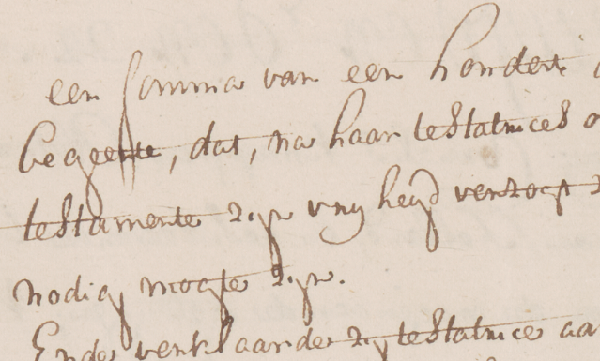 een somma van een hondert
begeerte, dat, na haar testatrices
testamente zijn vrijheijd verzogt
nodig mogte zijn.
Ende verklaarde zij testatrice aan